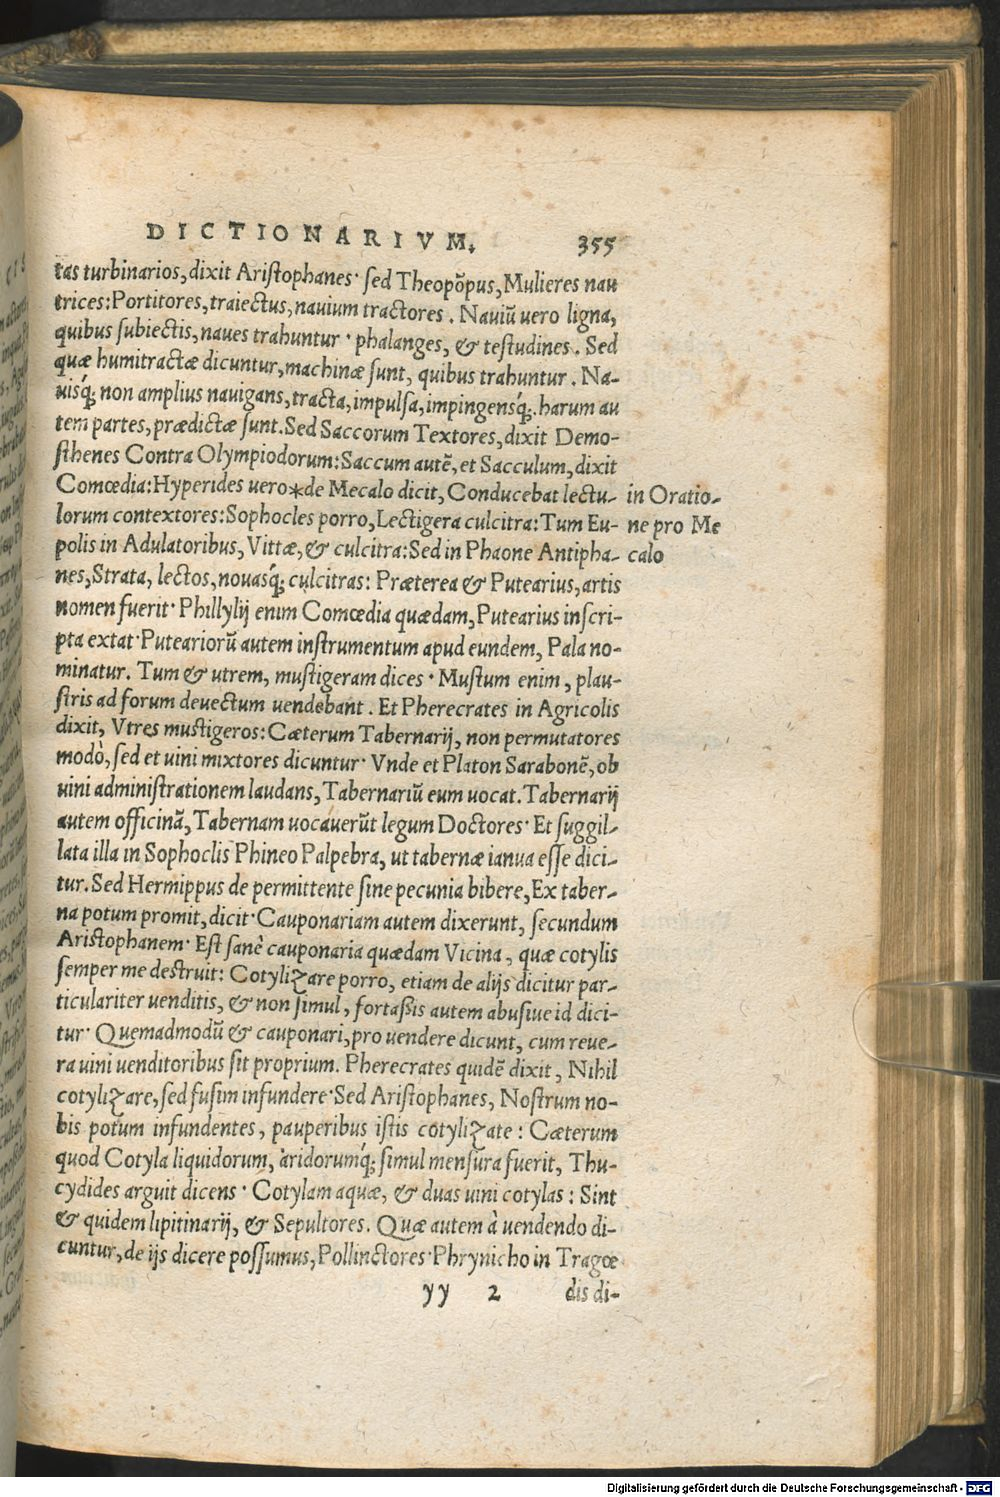 DICTIONARIVM. 355
tas turbinarios, dixit Aristophanes· sed Theopōpus, Mulieres nau
trices: Portitores, traiectus, nauium tractores. Nauiū uero ligna,
quibus subiectis, naues trahuntur· phalanges, & testudines. Sed
quæ humitractæ dicuntur, machinæ sunt, quibus trahuntur. Na-
uisq́; non amplius nauigans, tracta, impulsa, impingensq́;. harum au
tem partes, prædictæ sunt. Sed Saccorum Textores, dixit Demo-
sthenes Contra Olympiodorum: Saccum autē, et Sacculum, dixit
Comœdia: Hyperides uero*de Mecalo dicit, Conducebat lectu- in Oratio-
lorum contextores: Sophocles porro, Lectigera culcitra: Tum Eu- ne pro Me
polis in Adulatoribus, Vittæ, & culcitra: Sed in Phaone Antipha- calo
nes, Strata, lectos, nouasq́; culcitras: Præterea & Putearius, artis
nomen fuerit· Phillylij enim Comœdia quædam, Putearius inscri-
pta extat· Puteariorū autem instrumentum apud eundem, Pala no-
minatur. Tum & utrem, mustigeram dices· Mustum enim, plau-
stris ad forum deuectum uendebant. Et Pherecrates in Agricolis
dixit, Vtres mustigeros: Cæterum Tabernarij, non permutatores
modò, sed et uini mixtores dicuntur· Vnde et Platon Sarabonē, ob
uini administrationem laudans, Tabernariū eum uocat. Tabernarij
autem officinā, Tabernam uocauerūt legum Doctores· Et suggil-
lata illa in Sophoclis Phineo Palpebra, ut tabernæ ianua esse dici-
tur. Sed Hermippus de permittente sine pecunia bibere, Ex taber-
na potum promit, dicit· Cauponariam autem dixerunt, secundum
Aristophanem· Est sanè cauponaria quædam Vicina, quæ cotylis
semper me destruit: Cotylizare porro, etiam de alijs dicitur par-
ticulariter uenditis, & non simul, fortaßis autem abusiue id dici-
tur· Quemadmodū & cauponari, pro uendere dicunt, cum reue-
ra uini uenditoribus sit proprium. Pherecrates quidē dixit, Nihil
cotylizare, sed fusim infundere· Sed Aristophanes, Nostrum no-
bis potum infundentes, pauperibus istis cotylizate: Cæterum
quod Cotyla liquidorum, aridorumq́; simul mensura fuerit, Thu-
cydides arguit dicens· Cotylam aquæ, & duas uini cotylas: Sint
& quidem lipitinarij, & Sepultores. Quæ autem à uendendo di-
cuntur, de ijs dicere possumus, Pollinctores· Phrynicho in Tragœ
yy 2 dis di-
Digitalisierung gefördert durch die Deutsche Forschungsgemeinschaft - DFG